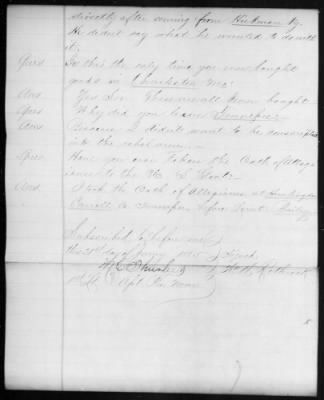 directly after coming from Hickman Ky.
He didnt say what he wanted to do with
it.
Ques. Is this the only time you ever bought
goods in Charleston Mo.
Ans. Yes Sir I never bought
Ques. Why did you leave Tennessee
Ans. Because I didnt want to be conscripted
into the rebel army.
Ques. Have you ever taken the Oath of Allegi
ance to the U. S. Govt.
Ans. I took the Oath of Allegiance at Huntingdon
Carroll Co Tennessee before Provt.
Subscribed & before me
this day of
1st Lt. & Asst. Pro. Mar.